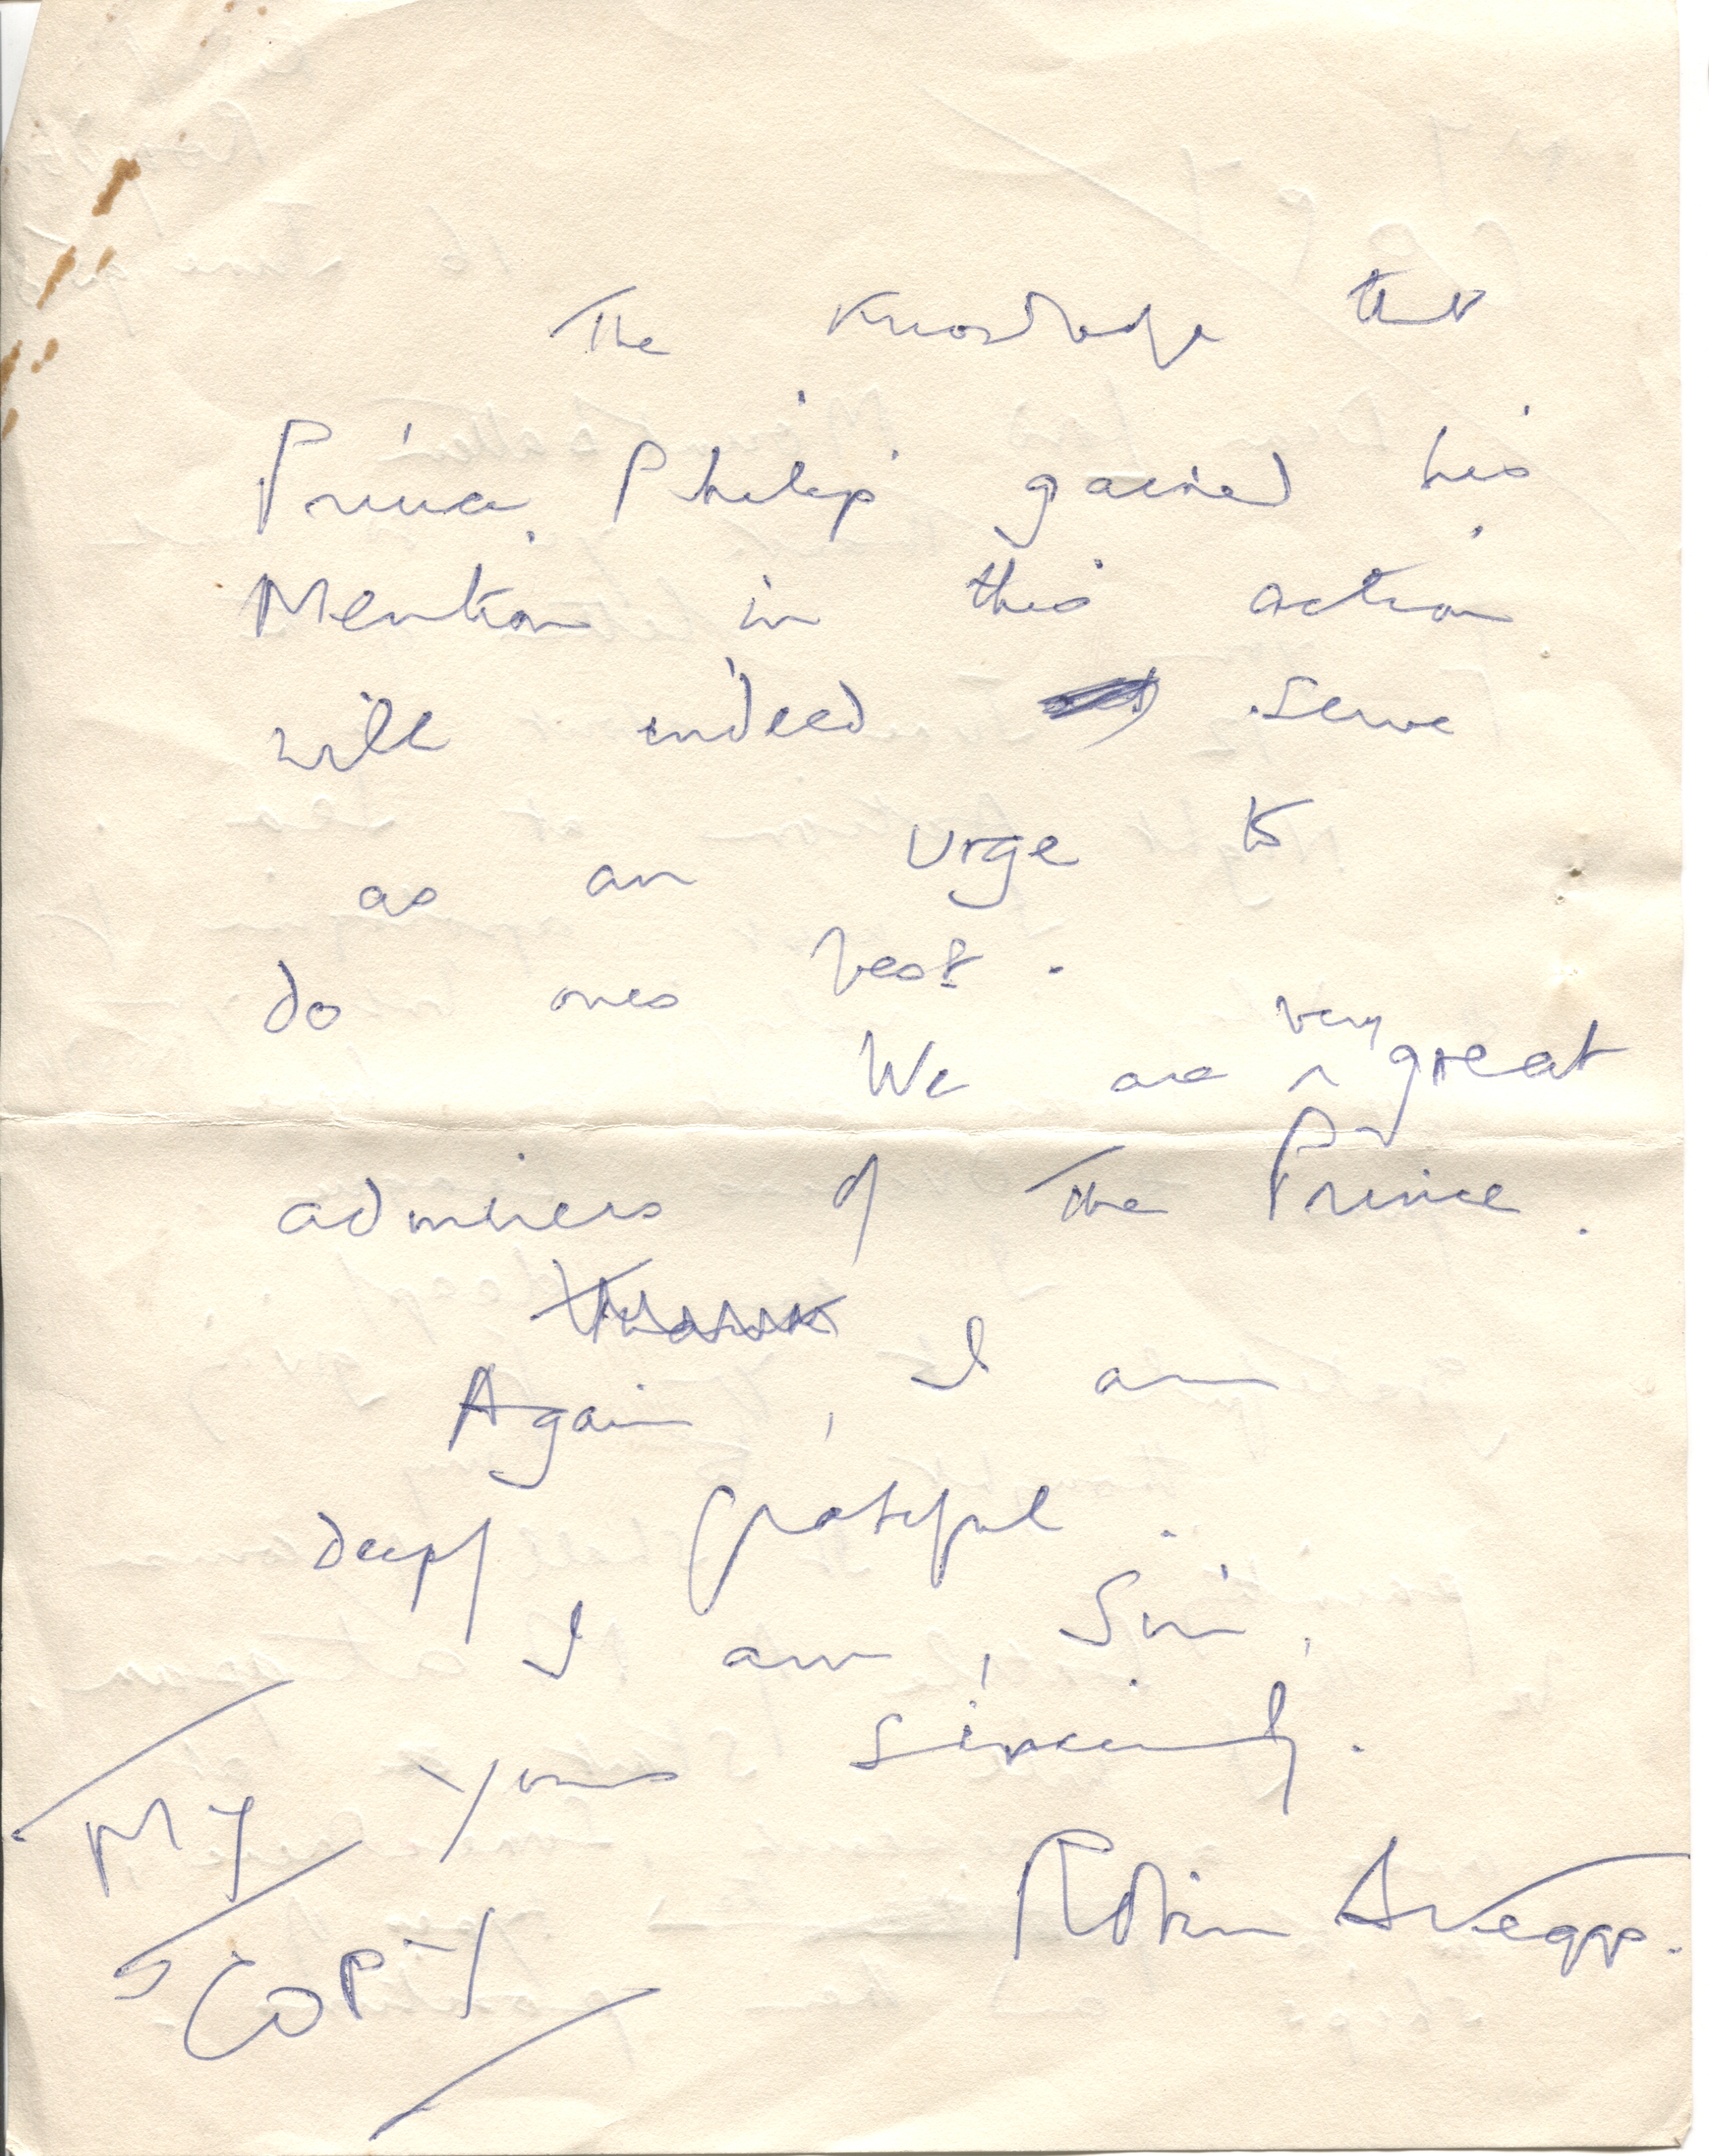 The knowledge that
Prince Philip gained his
Mention in this action
will indeed serve
as an urge to
do ones best.
We are very great
admirers of The Prince.
Thank
Again, I am
deeply grateful.
I am, Sir,
Yours sincerely.
Robin
MY
COPY